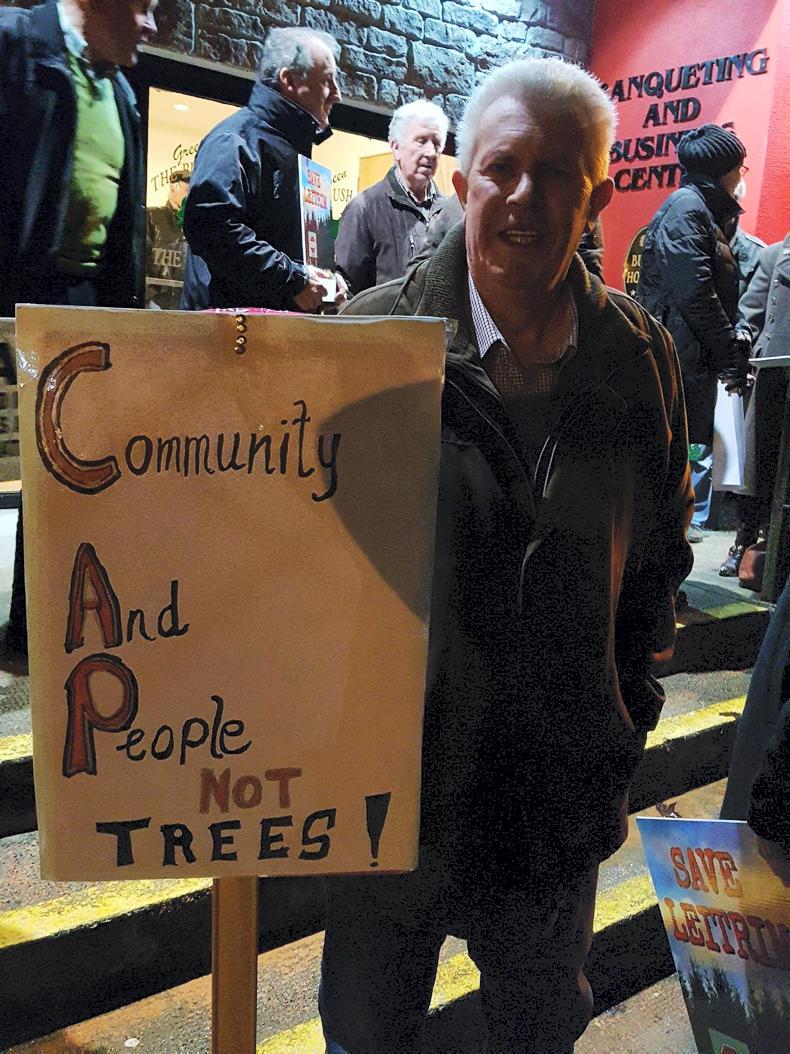 BANQUETING
AND
BUSINESS
SAVE
LEITRIM
Community
And
People
NOT
TREES!
SAVE
LEITRIM